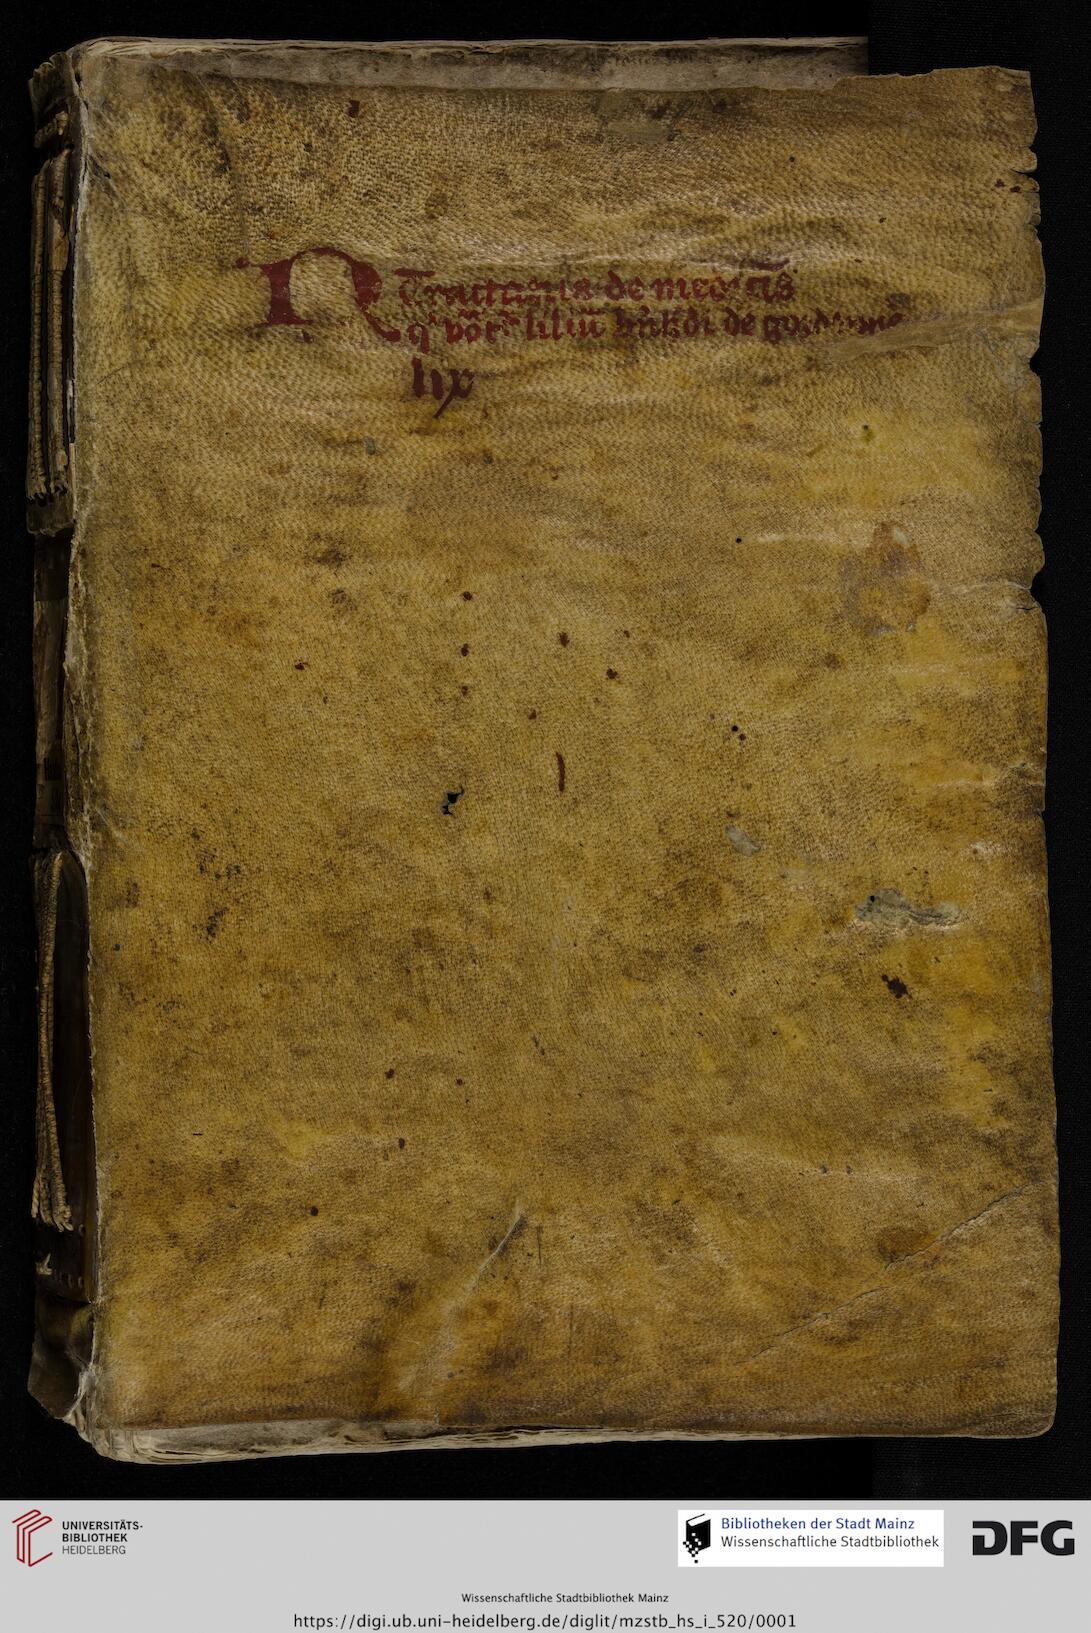 R Tractatus de medicīs
qͥ vōt̄ liliū bn̄hdi de gordonio
lix
UNIVERSITÄTS-
BIBLIOTHEK
HEIDELBERG
Bibliotheken der Stadt Mainz
Wissenschaftliche Stadtbibliothek
DFG
Wissenschaftliche Stadtbibliothek Mainz
https://digi.ub.uni-heidelberg.de/diglit/mzstb_hs_i_520/0001